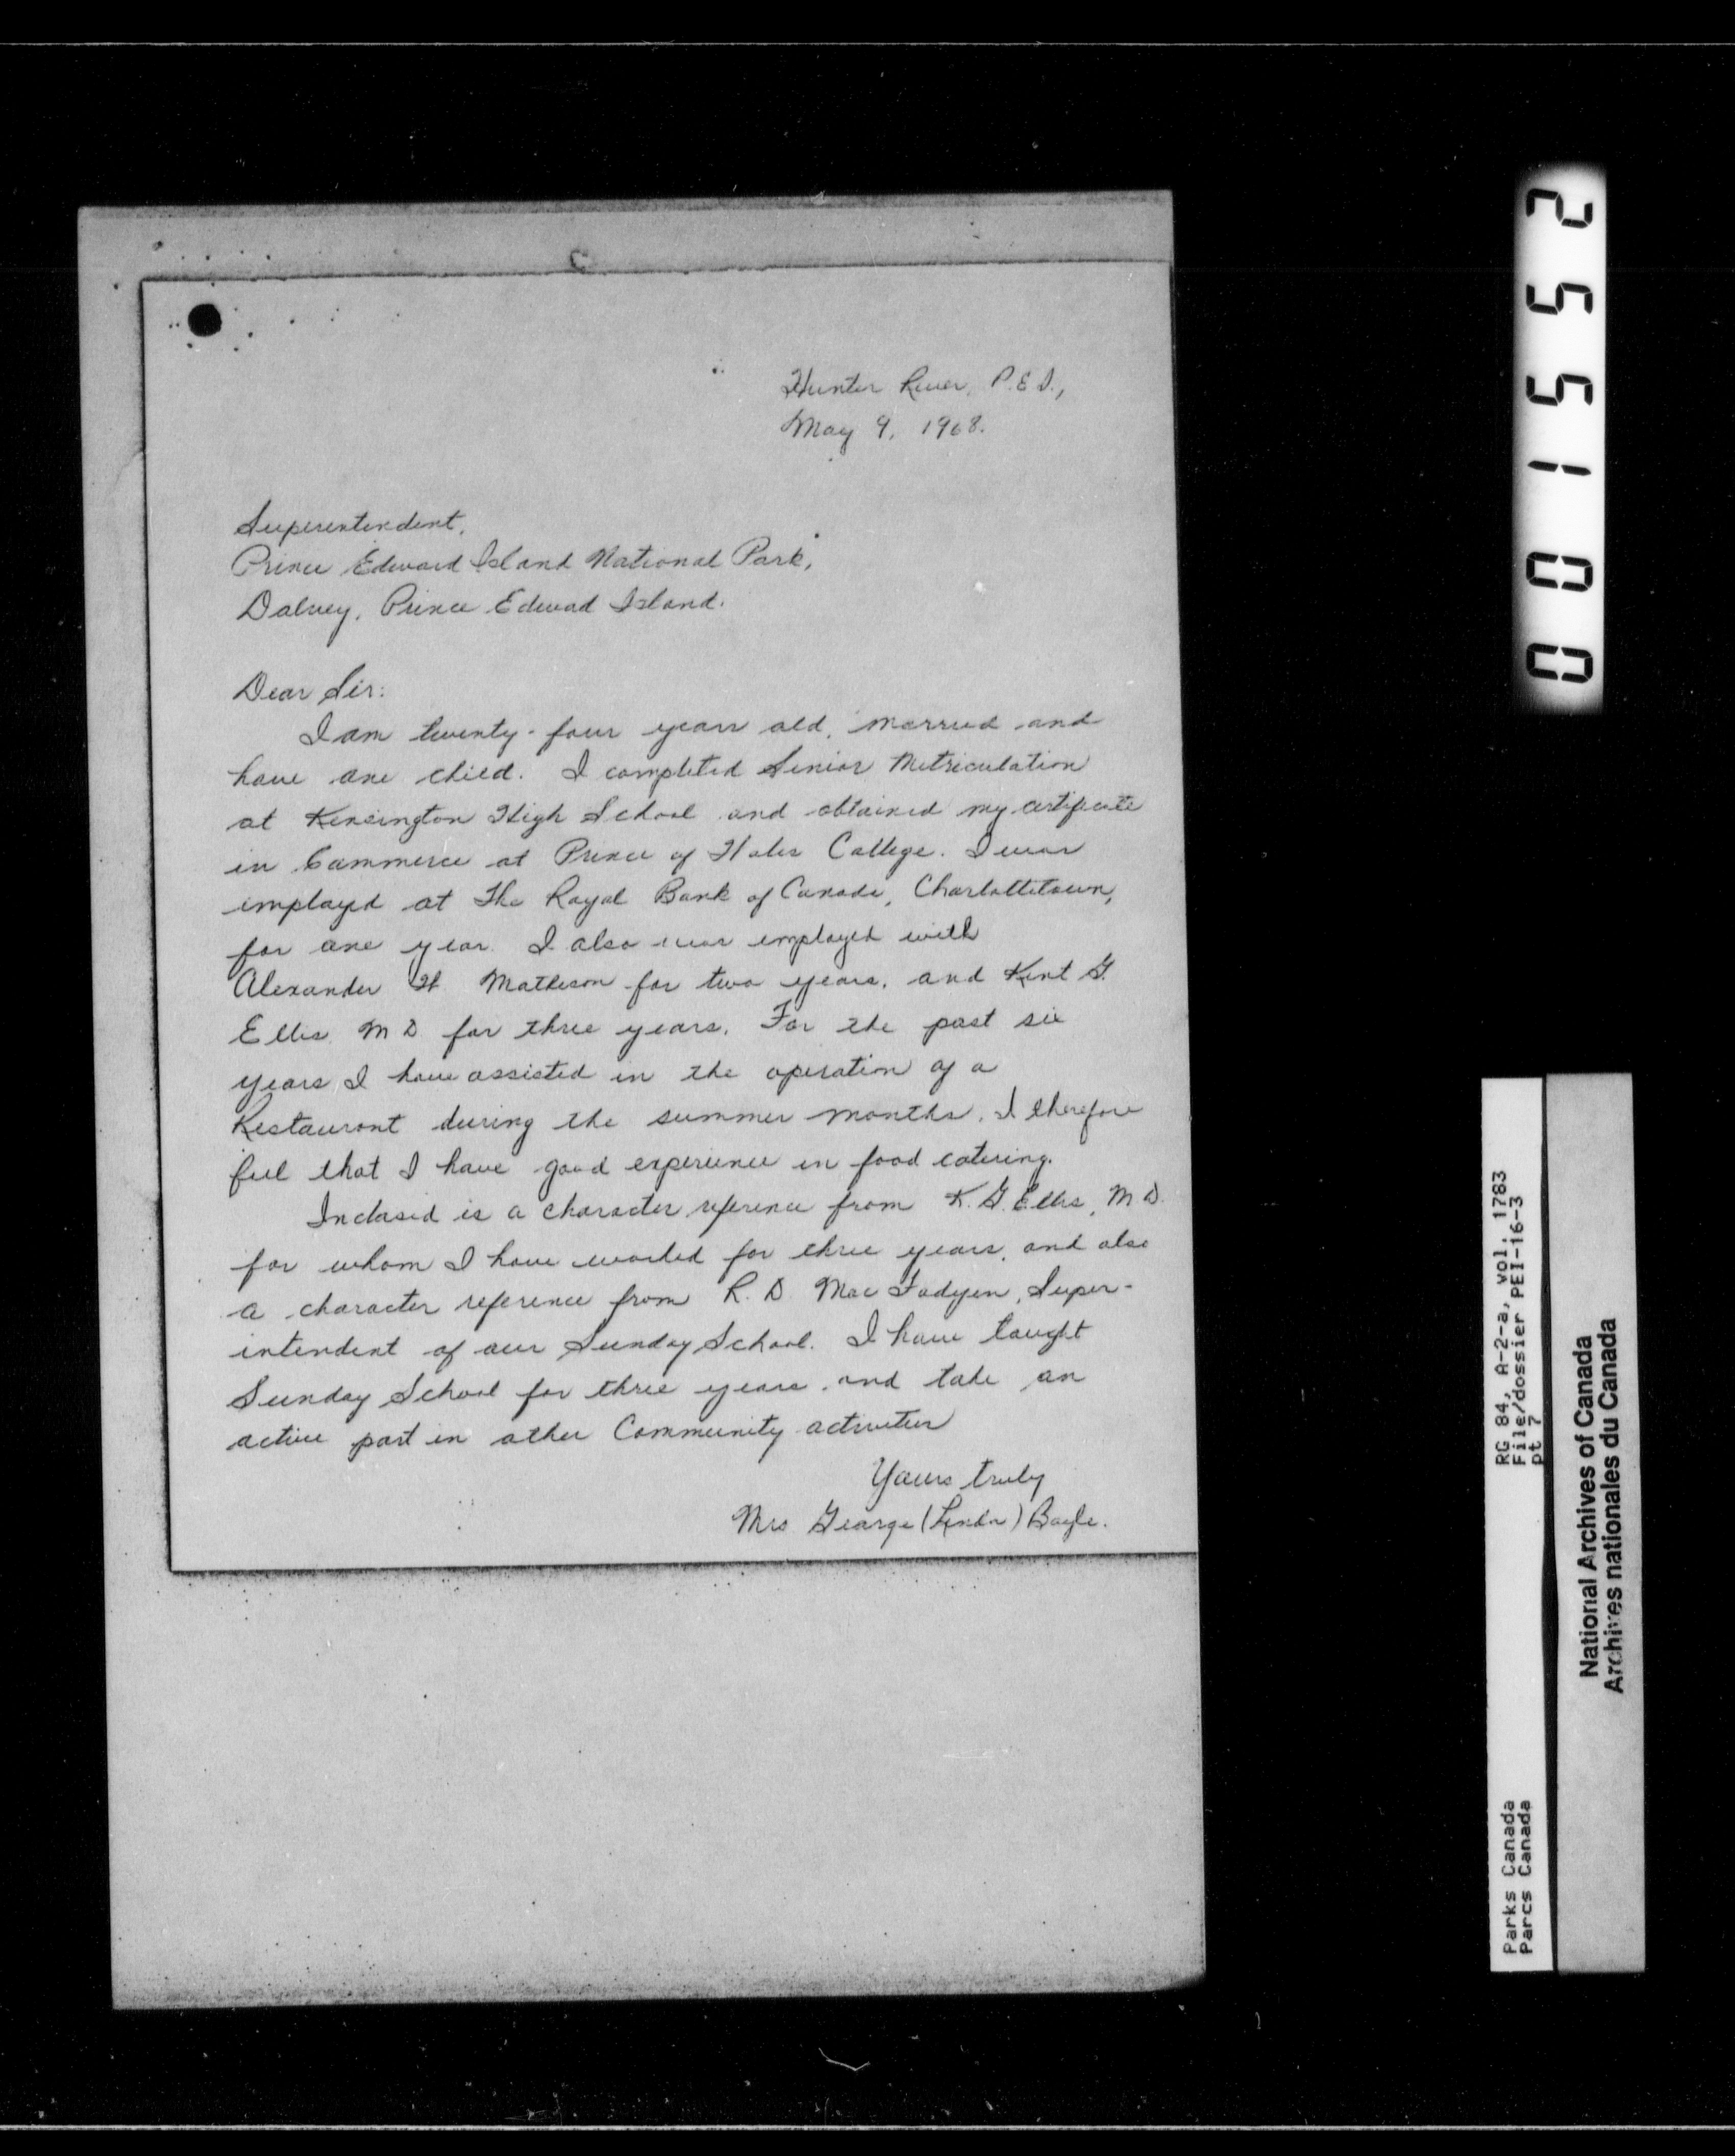 Hunter River, P.E.I.,
May 9, 1968.
Superentendent,
Prince Edward Island National Park,
Dalvey, Prince Edward Island.
Dear Sir:
I am twenty-four years old, married and
have one child. I completed Senior Matriculation
at Kensington High School and obtained my certificate
in Commerce at Prince of Wales College. I was
employed at The Royal Bank of Canada, Charlottetown,
for one year. I also was employed with
Alexander W. Matheson for two years, and Kent G.
Ellis M D for three years. For the past six
years, I have assisted in the operation of a
Restaurant during the summer months. I therefore
feel that I have good experience in food catering.
Inclosed is a character reference from K. G. Ellis, M D.
for whom I have worked for three years, and also
a character reference from R. D. Mac Fadyen, Super-
intendent of our Sunday School. I have taught
Sunday School for three years and take an
active part in other Community activities
Yours truly
Mrs George (Linda) Bagle.
0001552
RG 84, A-2-a, vol. 1783
File/dossier PEI-16-3
pt 7
Parks Canada
Parcs Canada
National Archives of Canada
Archives nationales du Canada